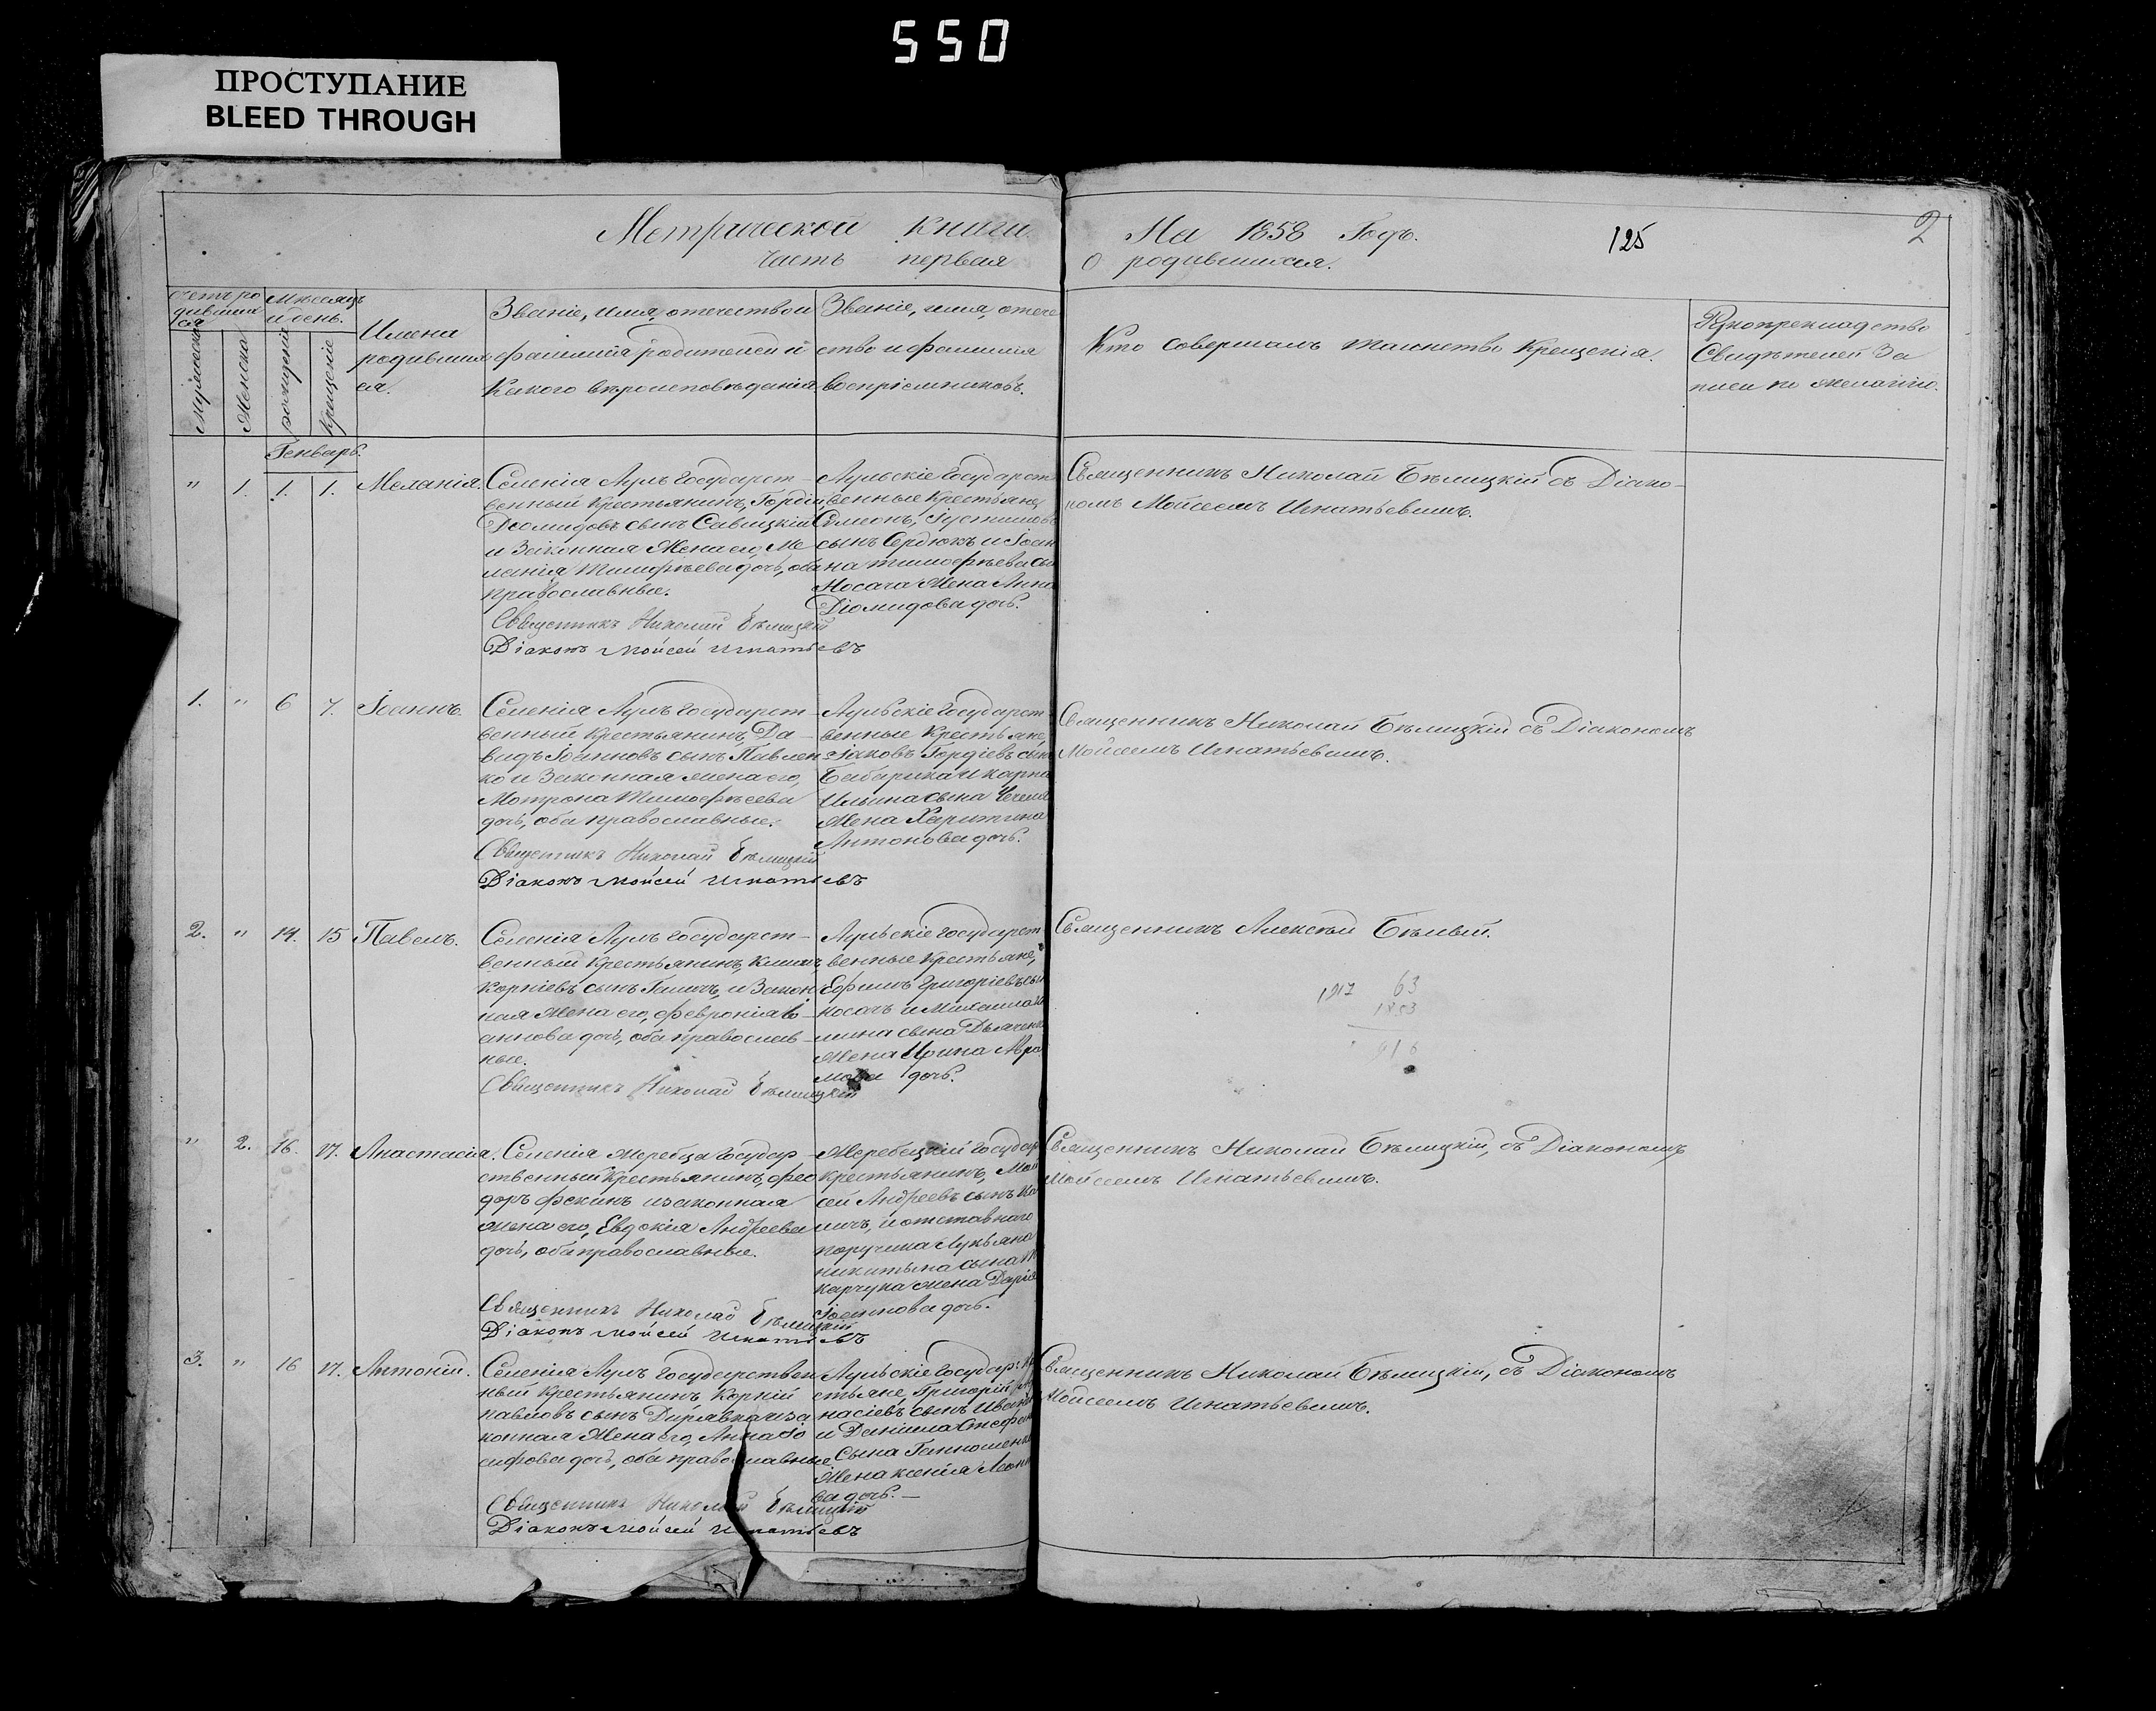 550
ПРОСТУПАНИЕ
BLEED THROUGH
Метрической Книги На 1858 Годъ. 125 2
Часть первая О родившихся.
Счетъ ро
дивших
ся
Мужеска
Женска
Мѣсяцъ
и день.
рожденіе
Крещеніе
Имена
родивших
ся.
Званіе, имя, отечество и
фамилія родителей и
Какого вѣроисповѣданія.
Званіе, имя, отече
ство и фамилія
воспріемниковъ.
Кто совершалъ таинство Крещенія.
Рукоприкладство
Свидѣтелей За
писи по желанію.
Генварь.
" 1. 1. 1. Меланія.
Селенія Аулъ государст-
венный Крестьянинъ, Гордій
Діомидовъ сынъ Савицкій
и Законная Жена его, Ме
ланія Тимофѣева дочь, оба
православные.
Священникъ Николай Бѣлицкій
Діаконъ Мойсей Игнатьевъ
Аульскіе государст
венные Крестьяне,
Симеонъ, Іустиновъ
сынъ Сердюкъ и Іоан
на Тимофѣева сы
Носача Жена Анна
Діомидова дочь.
Священникъ Николай Бѣлицкій съ Діако-
номъ Мойсеемъ Игнатьевымъ.
1. " 6 7. Іоаннъ.
Селенія Аулъ государст-
венный крестьянинъ, Да-
видъ Іоанновъ сынъ Павлен
ко и Законная жена его,
Мотрона Тимофѣева
дочь, оба православные.
Священникъ Николай Бѣлицкій
Діаконъ Мойсей Игнатьевъ
Аульскіе государст
венные Крестьяне
Іаковъ Гордіевъ сынъ
Бабарика и Карпа
Ильина сына
Жена Харитина
Антонова дочь.
Священникъ Николай Бѣлицкій съ Діакономъ
Мойсеемъ Игнатьевымъ.
2. " 14. 15 Павелъ.
Селенія Аулъ государст-
венный Крестьянинъ, Климъ
Корніевъ сынъ и Закон
ная Жена его, Февронія Іо-
аннова дочь, оба православ-
ные.
Священникъ Николай Бѣлицкій
Аульскіе государст
венные Крестьяне,
Ефимъ Григоріевъ сы
носачъ и Михаила
сына Дьяченк
Жена Ирина Авра
мова дочь.
Священникъ Алексѣй Бѣлый.
1917 63
1853
" 2. 16. 17. Анастасія.
Селенія Жеребца Государ-
ственный Крестьянинъ, Фео
доръ и законная
жена его, Евдокія Андреева
дочь, оба православные.
Священникъ Николай Бѣлицкій
Діаконъ Мойсей Игнатьевъ
Жеребецкій Государ
Крестьянинъ, Мой
сей Андреевъ сынъ
и отставнаго
поручика Лукьяна
Никитына сына
жена Дарія
Іоаннова дочь.
Священникъ Николай Бѣлицкій, съ Діакономъ
Мойсеемъ Игнатьевымъ.
3. " 16 17. Антоній.
Селенія Аулъ Государствен
ный Крестьянинъ Корній
Павловъ сынъ Дирявка и за
конная Жена его, Анна Іо
сифова дочь, оба православные
Священникъ Николай Бѣлицкій
Діаконъ Мойсей Игнатьевъ
Аульскіе Государ: кр
стьяне, Григорій
насіевъ сынъ
и Даніила Стефан
сына
Жена Ксенія
ва дочь.-
Священникъ Николай Бѣлицкій, съ Діакономъ
Мойсеемъ Игнатьевымъ.